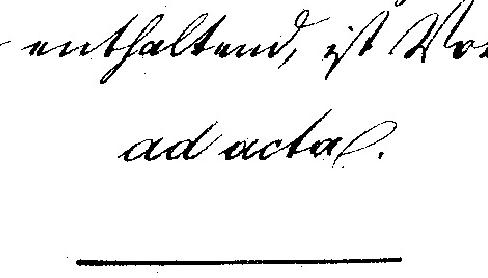 enthaltend, ist
ad acta.